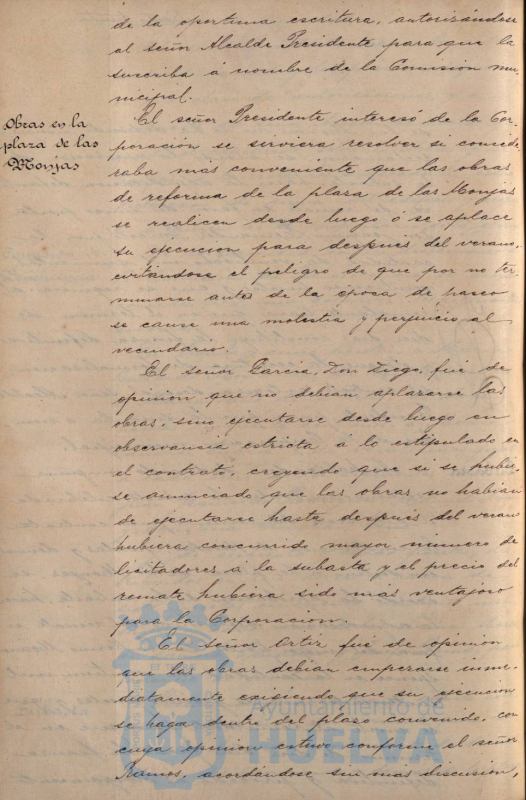 de la oportuna escritura, autorizándose
al señor Alcalde Presidente para que la
suscriba á nombre de la Comisión mu-
nicipal.
Obras en la
plaza de las
Monjas
El señor Presidente interesó de la Cor-
poración se sirviera resolver si conside-
raba más conveniente que las obras
de reforma de la plaza de las Monjas
se realicen desde luego ó se aplace
su ejecución para después del verano,
evitándose el peligro de que por no ter-
minarse antes de la época de paseo
se cause una molestia y perjuicio al
vecindario.
El señor García, Don Diego, fué de
opinión que no debian aplazarse las
obras, sino ejecutarse desde luego en
observansia estricta á lo estipulado en
el contrato, creyendo que si se hubie-
se anunciado que las obras no habian
de ejecutarse hasta después del verano
hubiera concurrido mayor número de
licitadores á la subasta y el precio del
remate hubiera sido mas ventajoso
para la Corporacion.
El señor Ortiz fué de opinion
que las obras debian empezarse inme-
diatamente exigiendo que su ejecucion
se haga dentro del plazo convenido, con
cuya opinion estuvo conforme el señor
Ramos, acordándose sin mas discusion,
Ayuntamiento de
HUELVA